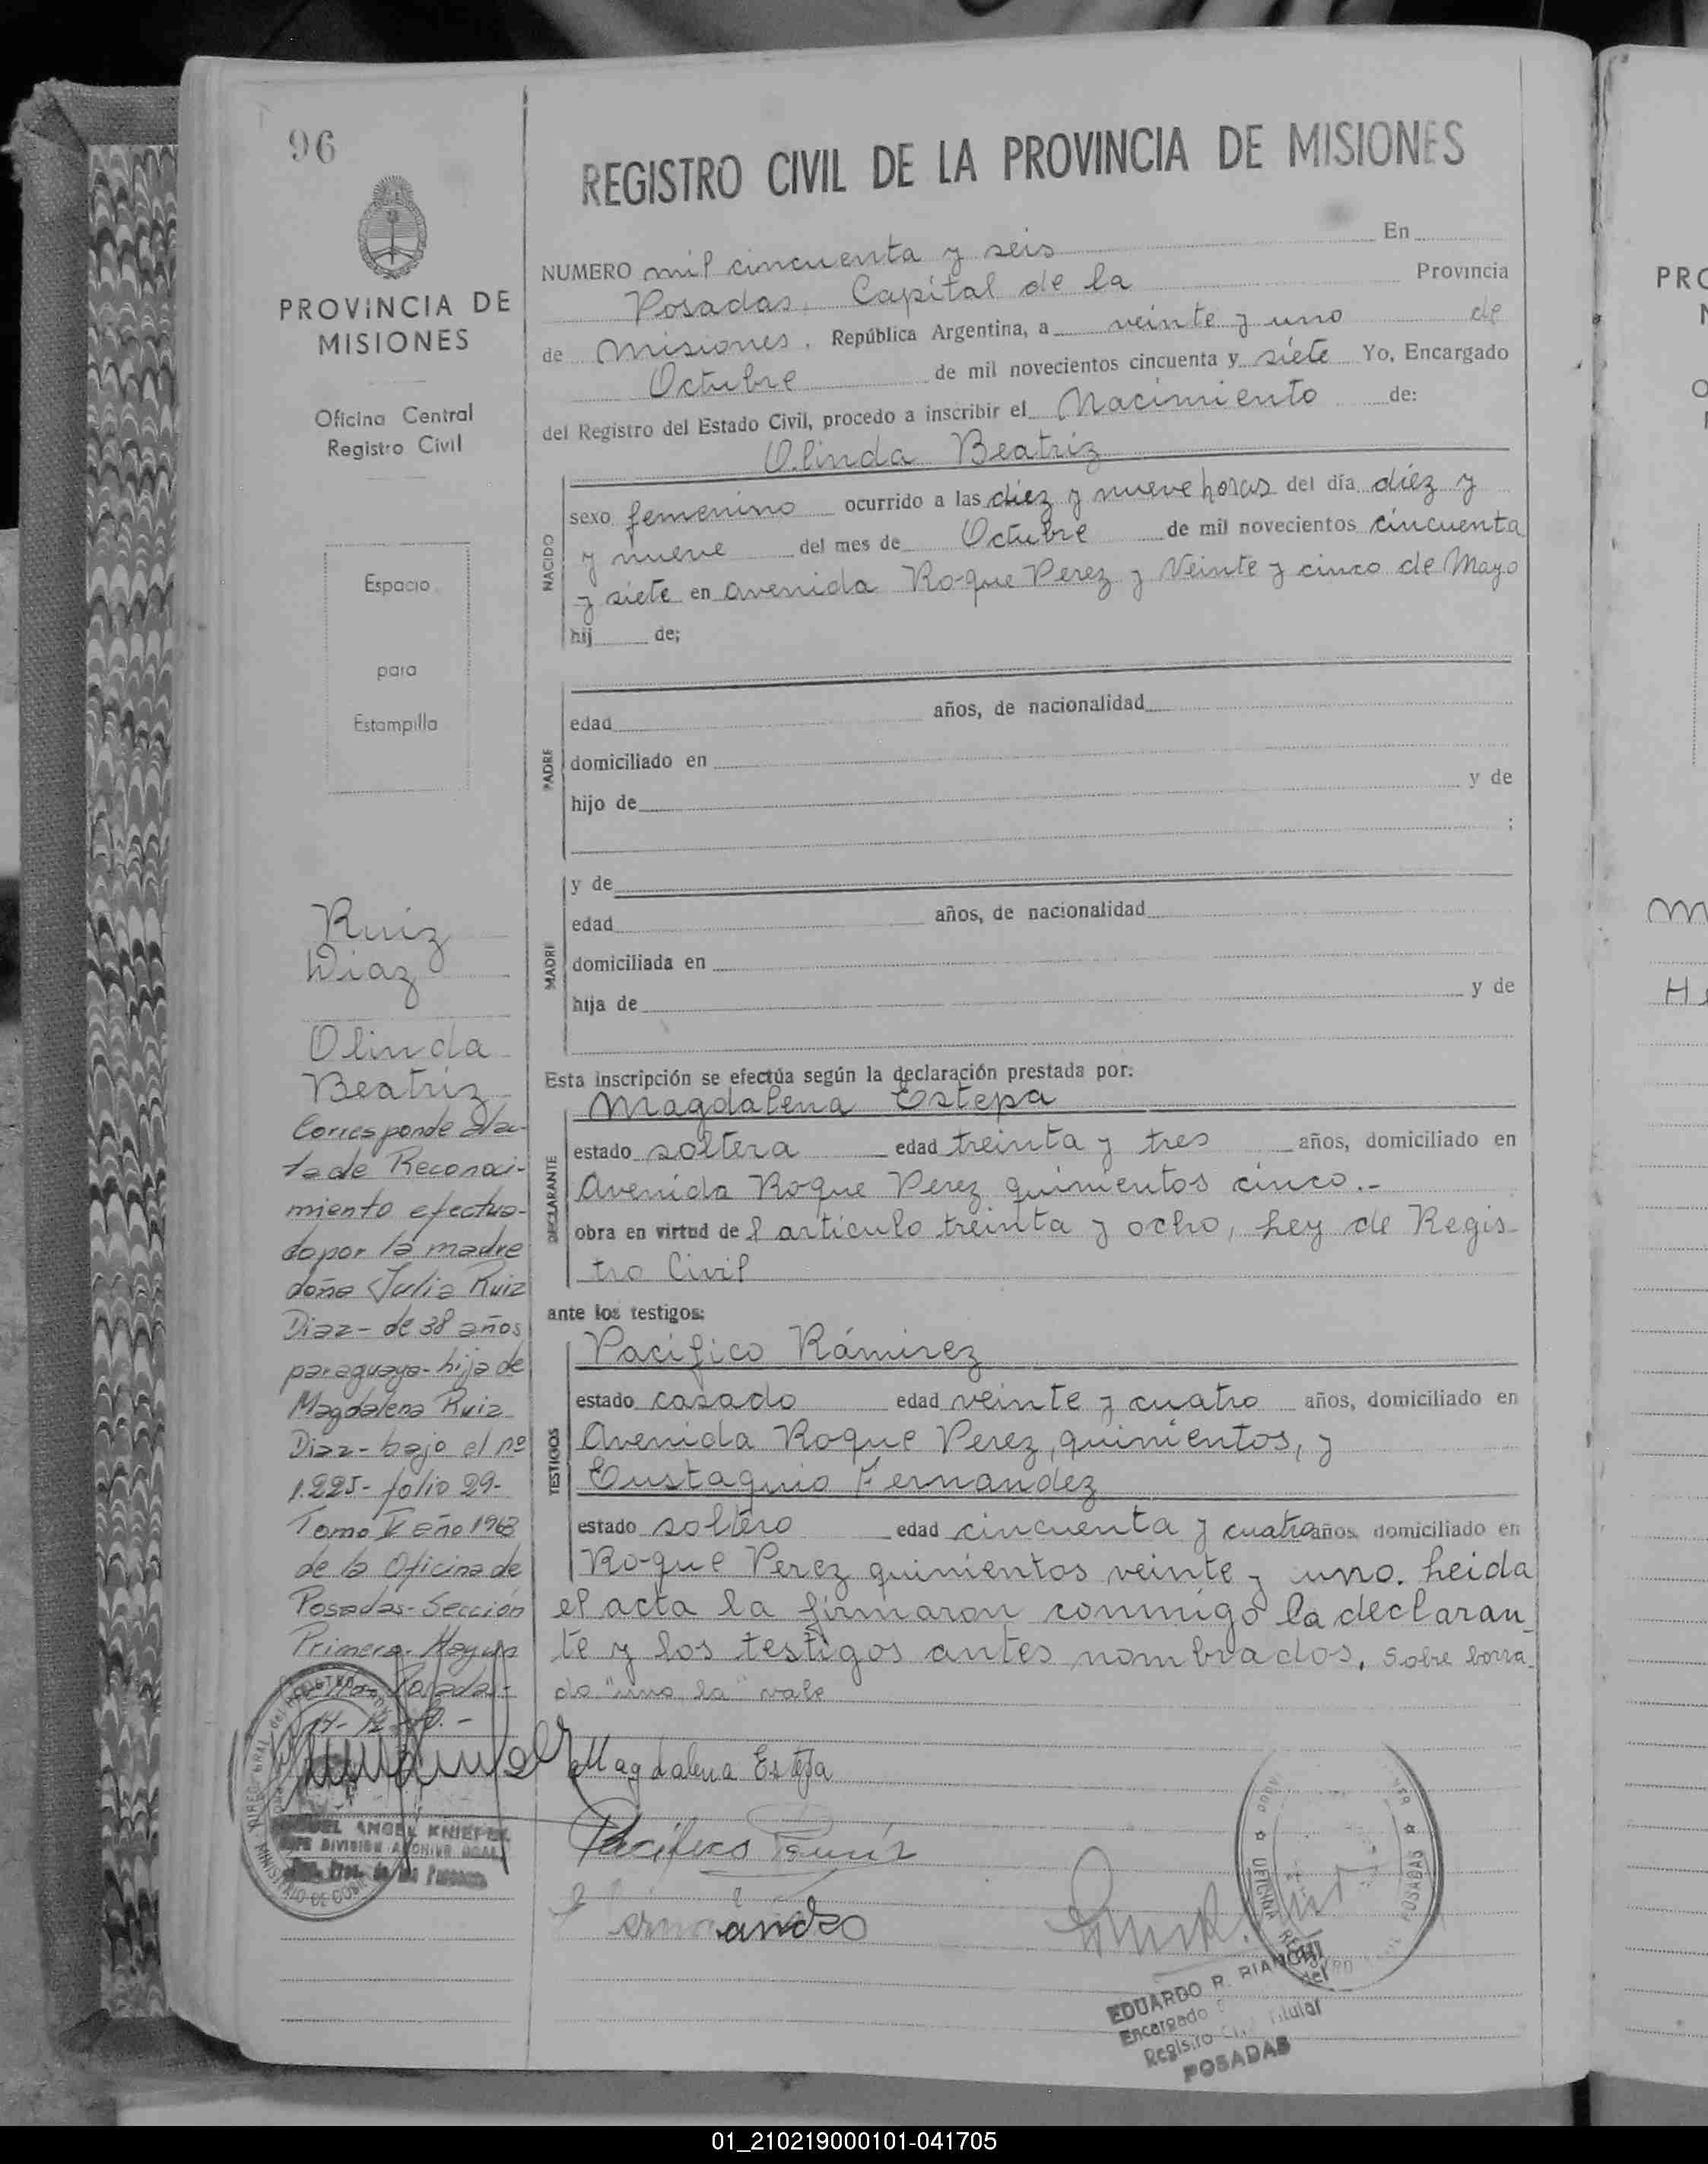 96
PROVINCIA DE
MISIONES
Oficina Central
Registro Civil
Espacio
para
Estampilla
Ruiz
Diaz
Olinda
Beatriz
Corresponde al ac-
ta de Reconoci-
miento efectua-
do por la madre
doña Julia Ruiz
Diaz - de 38 años
paraguaya - hija de
Magdalena Ruiz
Diaz - bajo el nº
1.225 - folio 29 -
Tomo V año 1968
de la Oficina de
Posadas - Sección
Primera.
Posadas -
14-12-
ANGEL KNIEPER
DIVISION ARCHIVO GRAL.
REGISTRO CIVIL DE LA PROVINCIA DE MISIONES
NUMERO mil cincuenta y seis En
Posadas, Capital de la Provincia
de Misiones, República Argentina, a veinte y uno de
Octubre de mil novecientos cincuenta y siete Yo, Encargado
del Registro del Estado Civil, procedo a inscribir el Nacimiento de:
Olinda Beatriz
NACIDO
sexo femenino ocurrido a las diez y nueve horas del día diéz y
y nueve del mes de Octubre de mil novecientos cincuenta
y siete en avenida Roque Perez y Veinte y cinco de Mayo
hij de;
PADRE
edad años, de nacionalidad
domiciliado en
hijo de y de
;
MADRE
y de
edad años, de nacionalidad
domiciliada en
hija de y de
Esta inscripción se efectúa según la declaración prestada por:
DECLARANTE
Magdalena Estepa
estado soltera edad treinta y tres años, domiciliado en
Avenida Roque Perez quinientos cinco.-
obra en virtud del artículo treinta y ocho, Ley de Regis-
tro Civil
ante los testigos:
TESTIGOS
Pacifico Rámirez
estado casado edad veinte y cuatro años, domiciliado en
Avenida Roque Perez, quinientos, y
Eustaquio Fernandez
estado soltero edad cincuenta y cuatro años, domiciliado en
Roque Perez quinientos veinte y uno. Leida
el acta la firmaron conmigo la declaran-
te y los testigos antes nombrados. Sobre borra-
do "uno, la" vale
Magdalena Estepa
Pacifico
EDUARDO R. BIANCHI
Encargado del
Registro Civil Titular
POSADAS
01_210219000101-041705